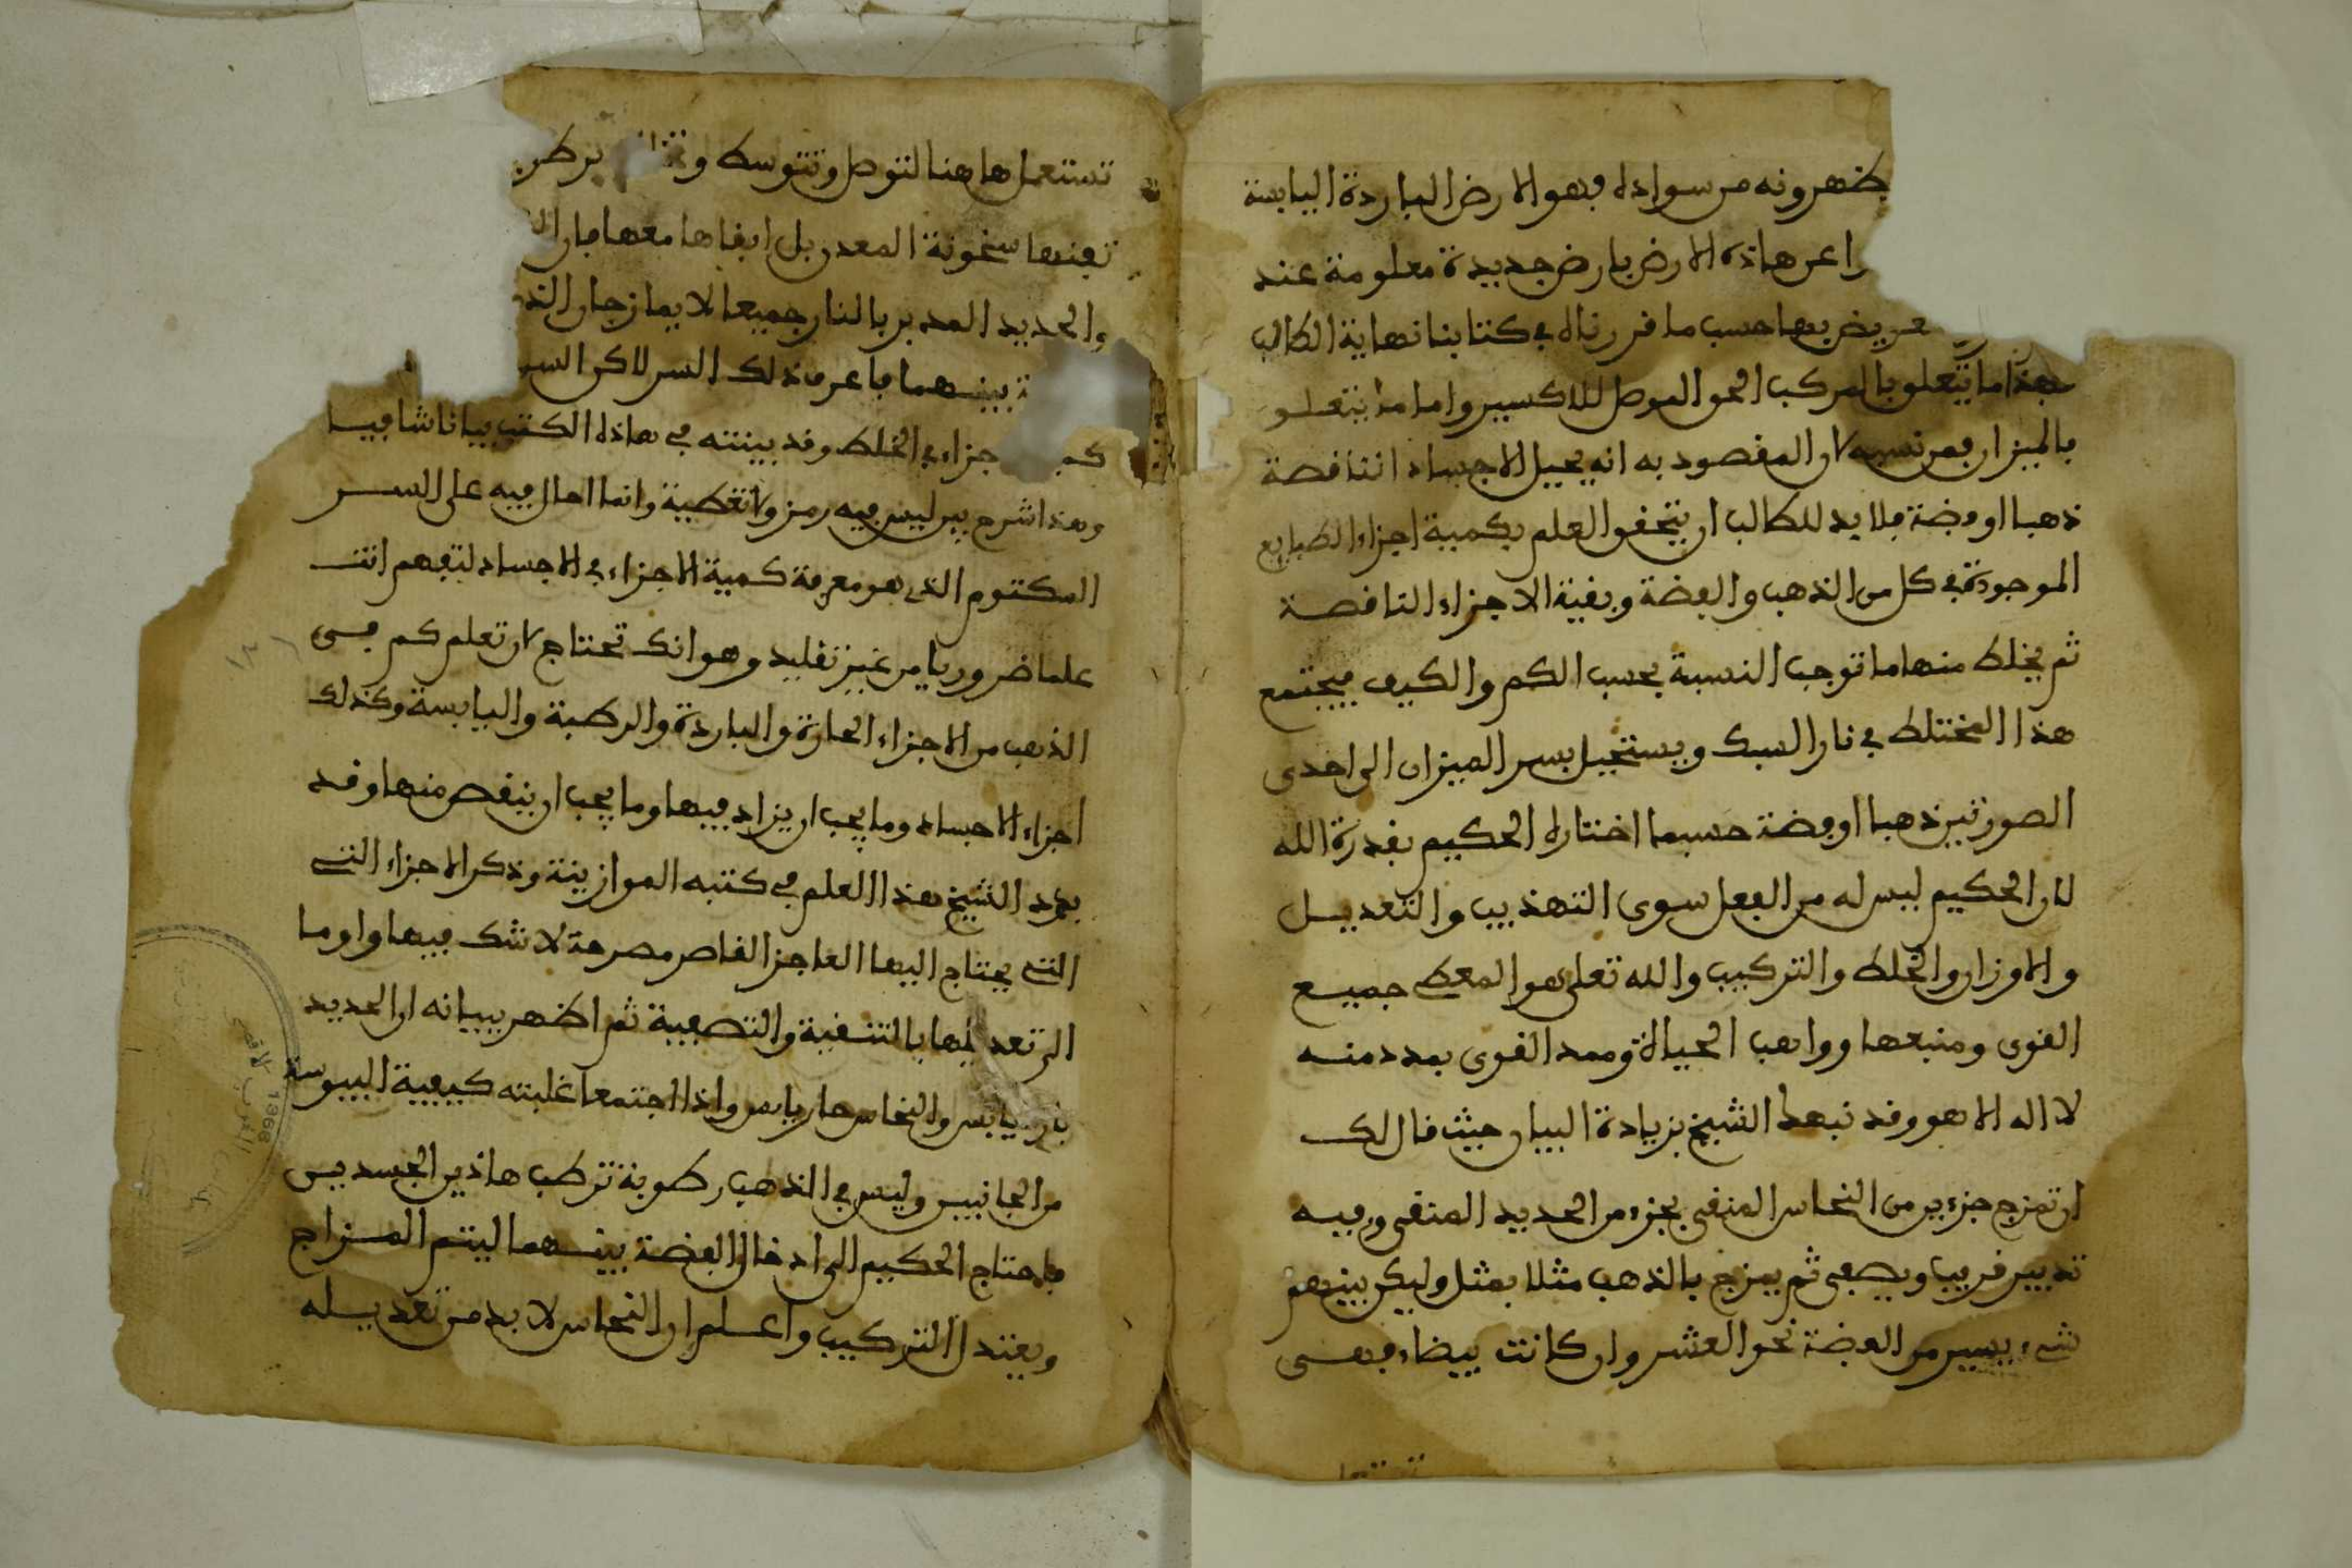 يظهرونه من سواده فهو الارض الباردة اليابسة
عن هاذه الارض بارض جديدة معلومة عند
حسب ما قررناه في كتابنا نهاية الطالب
هذا ما يتعلق بالمركب الحق الموصل للاكسير واما ما يتعلق
بالميزان فمن نسبه لان المقصود به انه يحيل الاجساد الناقصة
ذهبا او فضة فلا بد للطالب ان يتحقق العلم بكمية اجزاء الطبايع
الموجودة في كل من الذهب والفضة وبقية الاجزاء الناقصة
ثم يخلط منها ما توجب النسبة بحسب الكم والكيف فيجتمع
هذا المختلط في نار السبك ويستحيل بسر الميزان الى احدى
الصورتين ذهبا او فضة حسبما اختاره الحكيم بقدرة الله
لان الحكيم ليس له من الفعل سوى التهذيب والتعديل
والاوزان والخلط والتركيب والله تعلى هو المعطي جميع
القوى ومنبعها وواهب الحياة وممد القوى بمدد منه
لا اله الا هو وقد نبهك الشيخ بزيادة البيان حيث قال لك
ان تمزج جزءين من النحاس المنقى بجزء من الحديد المنقى وفيه
تدبير قريب ويصفى ثم يمزج بالذهب مثلا بمثل وليكن بينهم
شيء يسير من الفضة نحو العشر وان كانت بيضاء فهي
تستعملها
تستعمل هاهنا لتوصل وتتوسط
تفنها سخونة المعدن بل ابقاها معها فان
والحديد المدبر بالنار جميعا لا يمازجان
بينهما فاعرف ذلك السر لاكن السر
جزاء في الخلط وقد بينته في هاذه الكتب بيانا شافيا
وهذا شرح بين ليس فيه رمز ولا تغطية وانما احال فيه على السر
المكتوم الذي هو معرفة كمية الاجزاء في الاجساد لتفهم انت
علما ضروريا من غير تقليد وهو انك تحتاج لان تعلم كم في
الذهب من الاجزاء الحارة والباردة والرطبة واليابسة وكذلك
اجزاء الاجساد وما يجب ان يزاد فيها وما يجب ان ينقص منها وقد
الشيخ هذا العلم في كتبه الموازينة وذكر الاجزاء التي
التي يحتاج اليها العاجز القاصر مصرحة لا شك فيها واوما
الى تعديلها بالتنقية والتصفية ثم اظهر ببيانه ان الحديد
يابس والنحاس حار يابس واذا اجتمعا غلبته كيفية اليبوسة
من الجانبين وليس في الذهب رطوبة ترطب هاذين الجسدين
فاحتاج الحكيم الى ادخال الفضة بينهما ليتم المزاج
ويعتدل التركيب واعلم ان النحاس لا بد من تعديله
1968